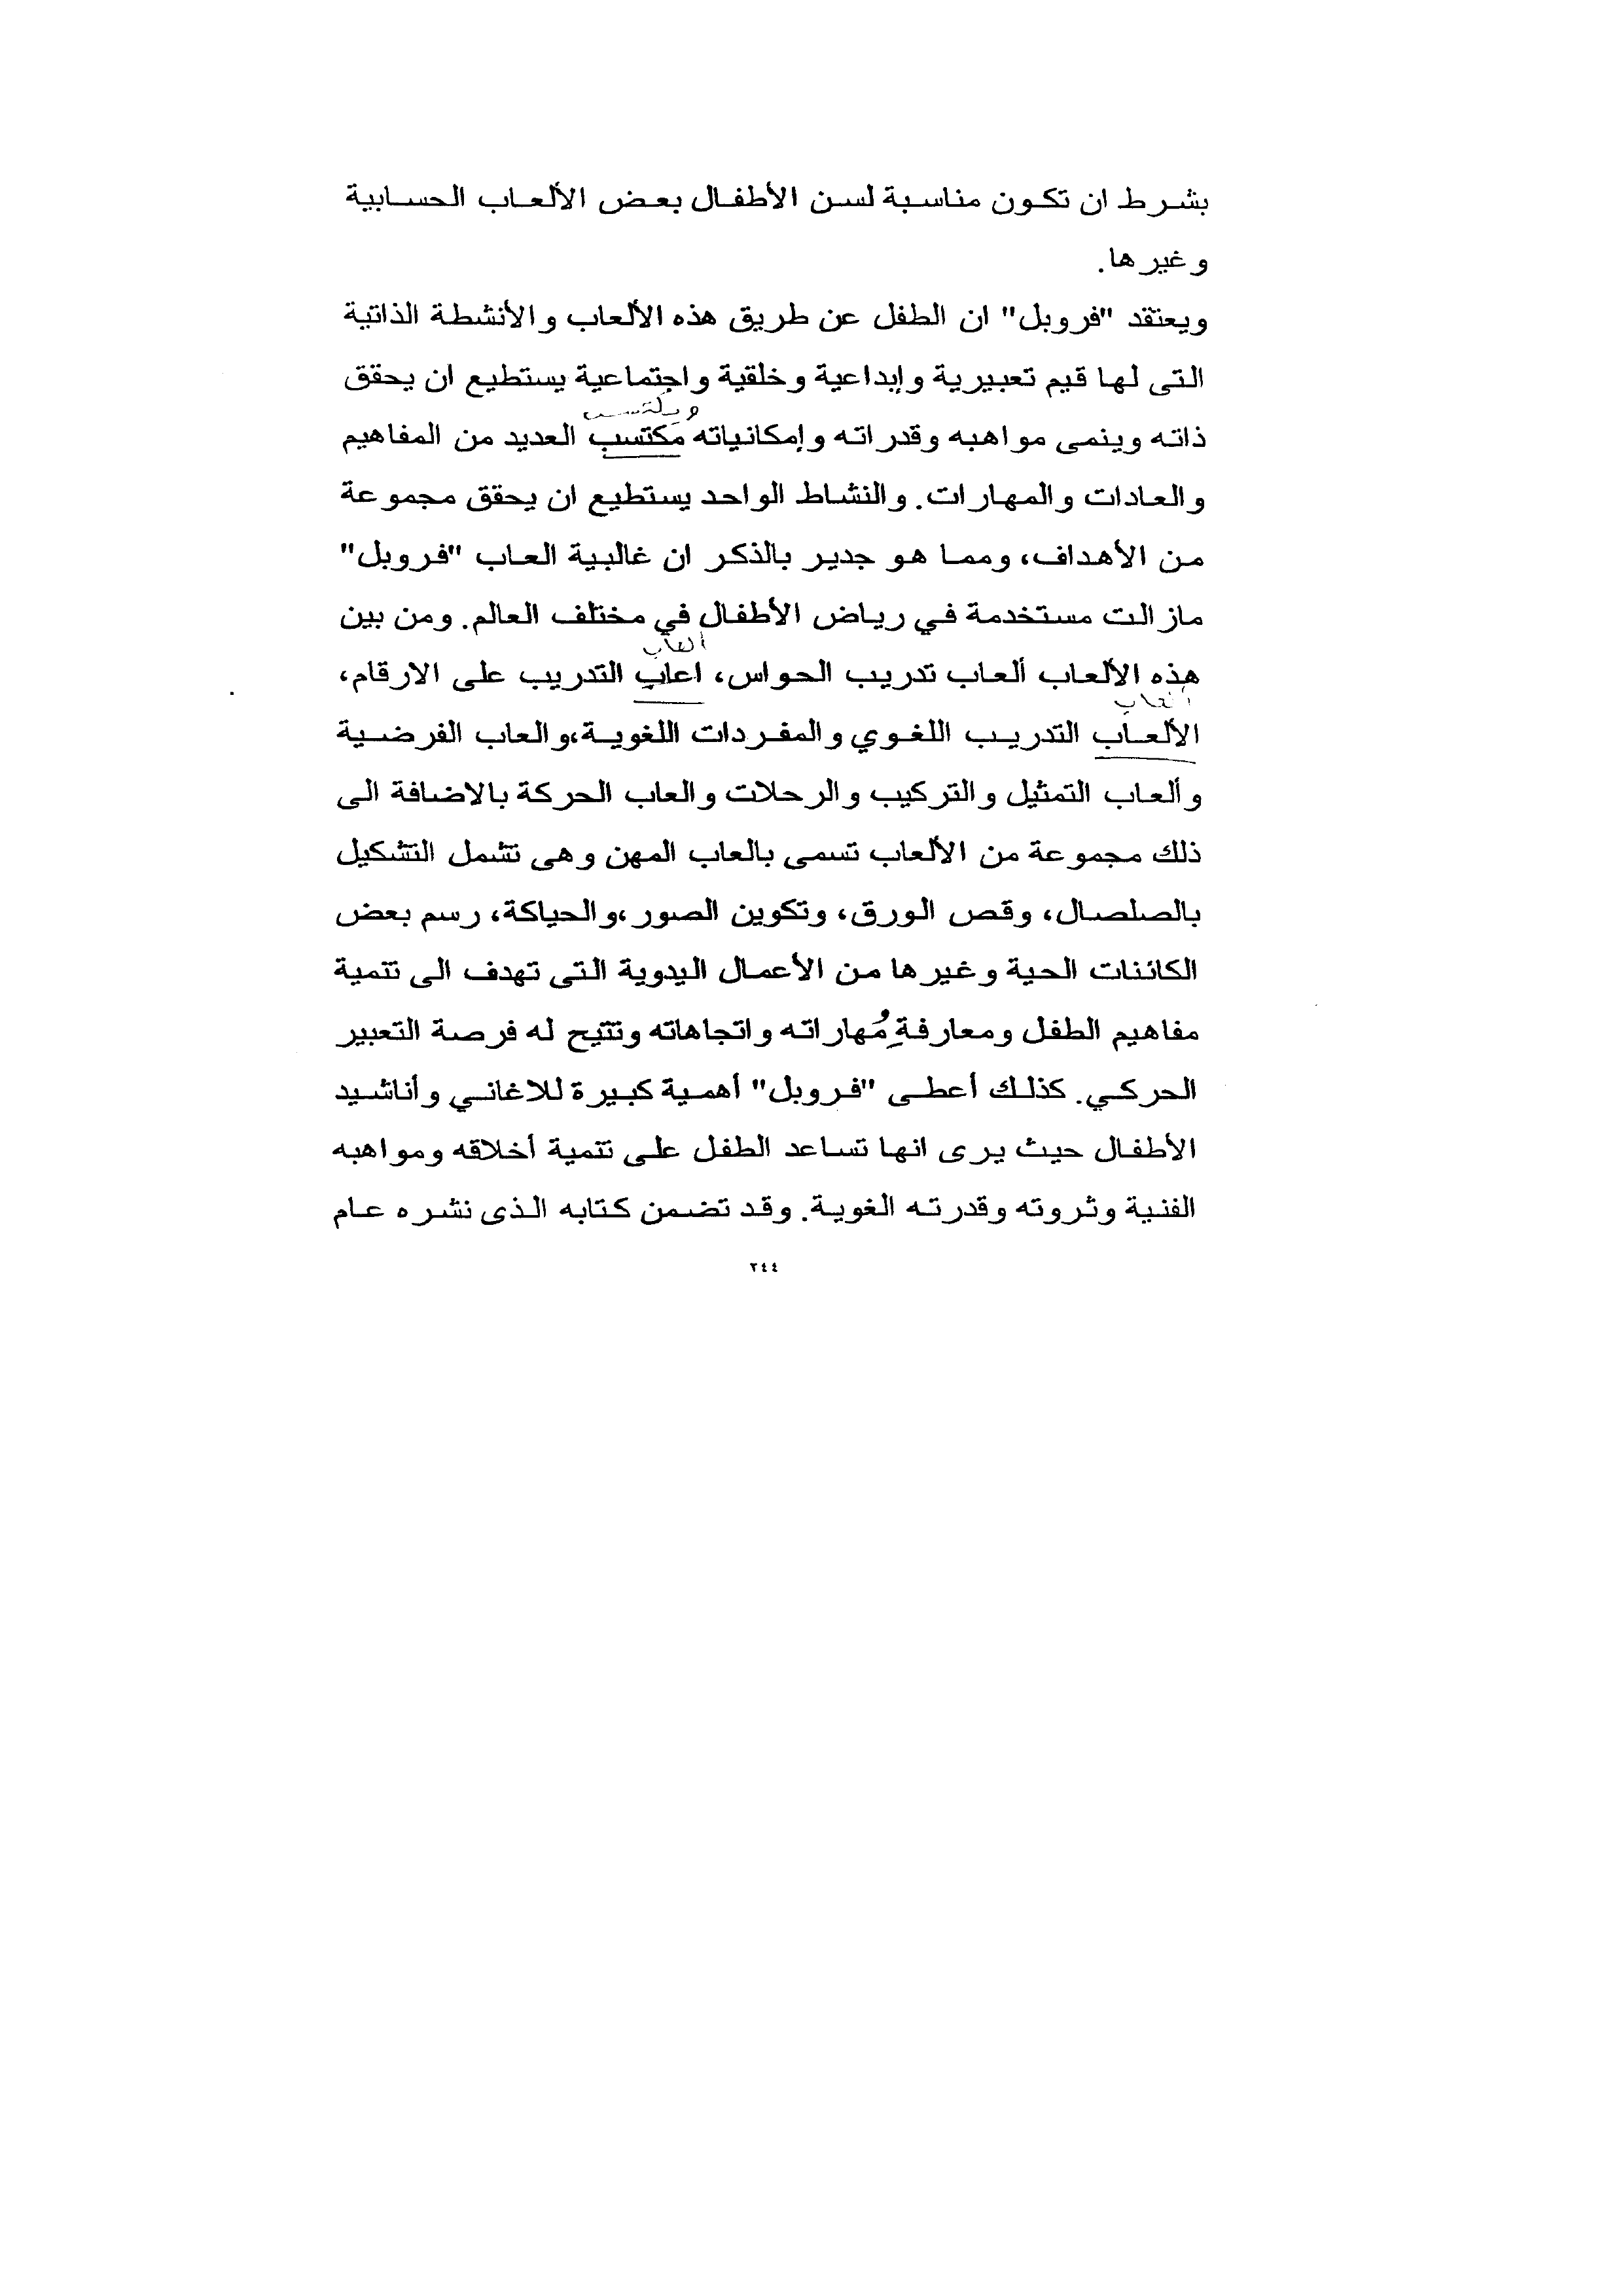 بشرط ان تكون مناسبة لسن الأطفال بعض الألعاب الحسابية
وغيرها.
ويعتقد "فروبل" ان الطفل عن طريق هذه الألعاب والأنشطة الذاتية
التى لها قيم تعبيرية وإبداعية وخلقية واجتماعية يستطيع ان يحقق
ويكتسب
ذاته وينمى مواهبه وقدراته وإمكانياته مكتسب العديد من المفاهيم
والعادات والمهارات. والنشاط الواحد يستطيع ان يحقق مجموعة
من الأهداف، ومما هو جدير بالذكر ان غالبية العاب "فروبل"
مازالت مستخدمة في رياض الأطفال في مختلف العالم. ومن بين
ألعاب
هذه الألعاب ألعاب تدريب الحواس، اعاب التدريب على الارقام،
ألعاب
الألعاب التدريب اللغوي والمفردات اللغوية،والعاب الفرضية
وألعاب التمثيل والتركيب والرحلات والعاب الحركة بالاضافة الى
ذلك مجموعة من الألعاب تسمى بالعاب المهن وهى تشمل التشكيل
بالصلصال، وقص الورق، وتكوين الصور،والحياكة، رسم بعض
الكائنات الحية وغيرها من الأعمال اليدوية التى تهدف الى تتمية
مفاهيم الطفل ومعارفة ومهاراته واتجاهاته وتتيح له فرصة التعبير
الحركي. كذلك أعطى "فروبل" أهمية كبيرة للاغاني وأناشيد
الأطفال حيث يرى انها تساعد الطفل على تتمية أخلاقه ومواهبه
الفنية وثروته وقدرته الغوية. وقد تضمن كتابه الذى نشره عام
٢٤٤